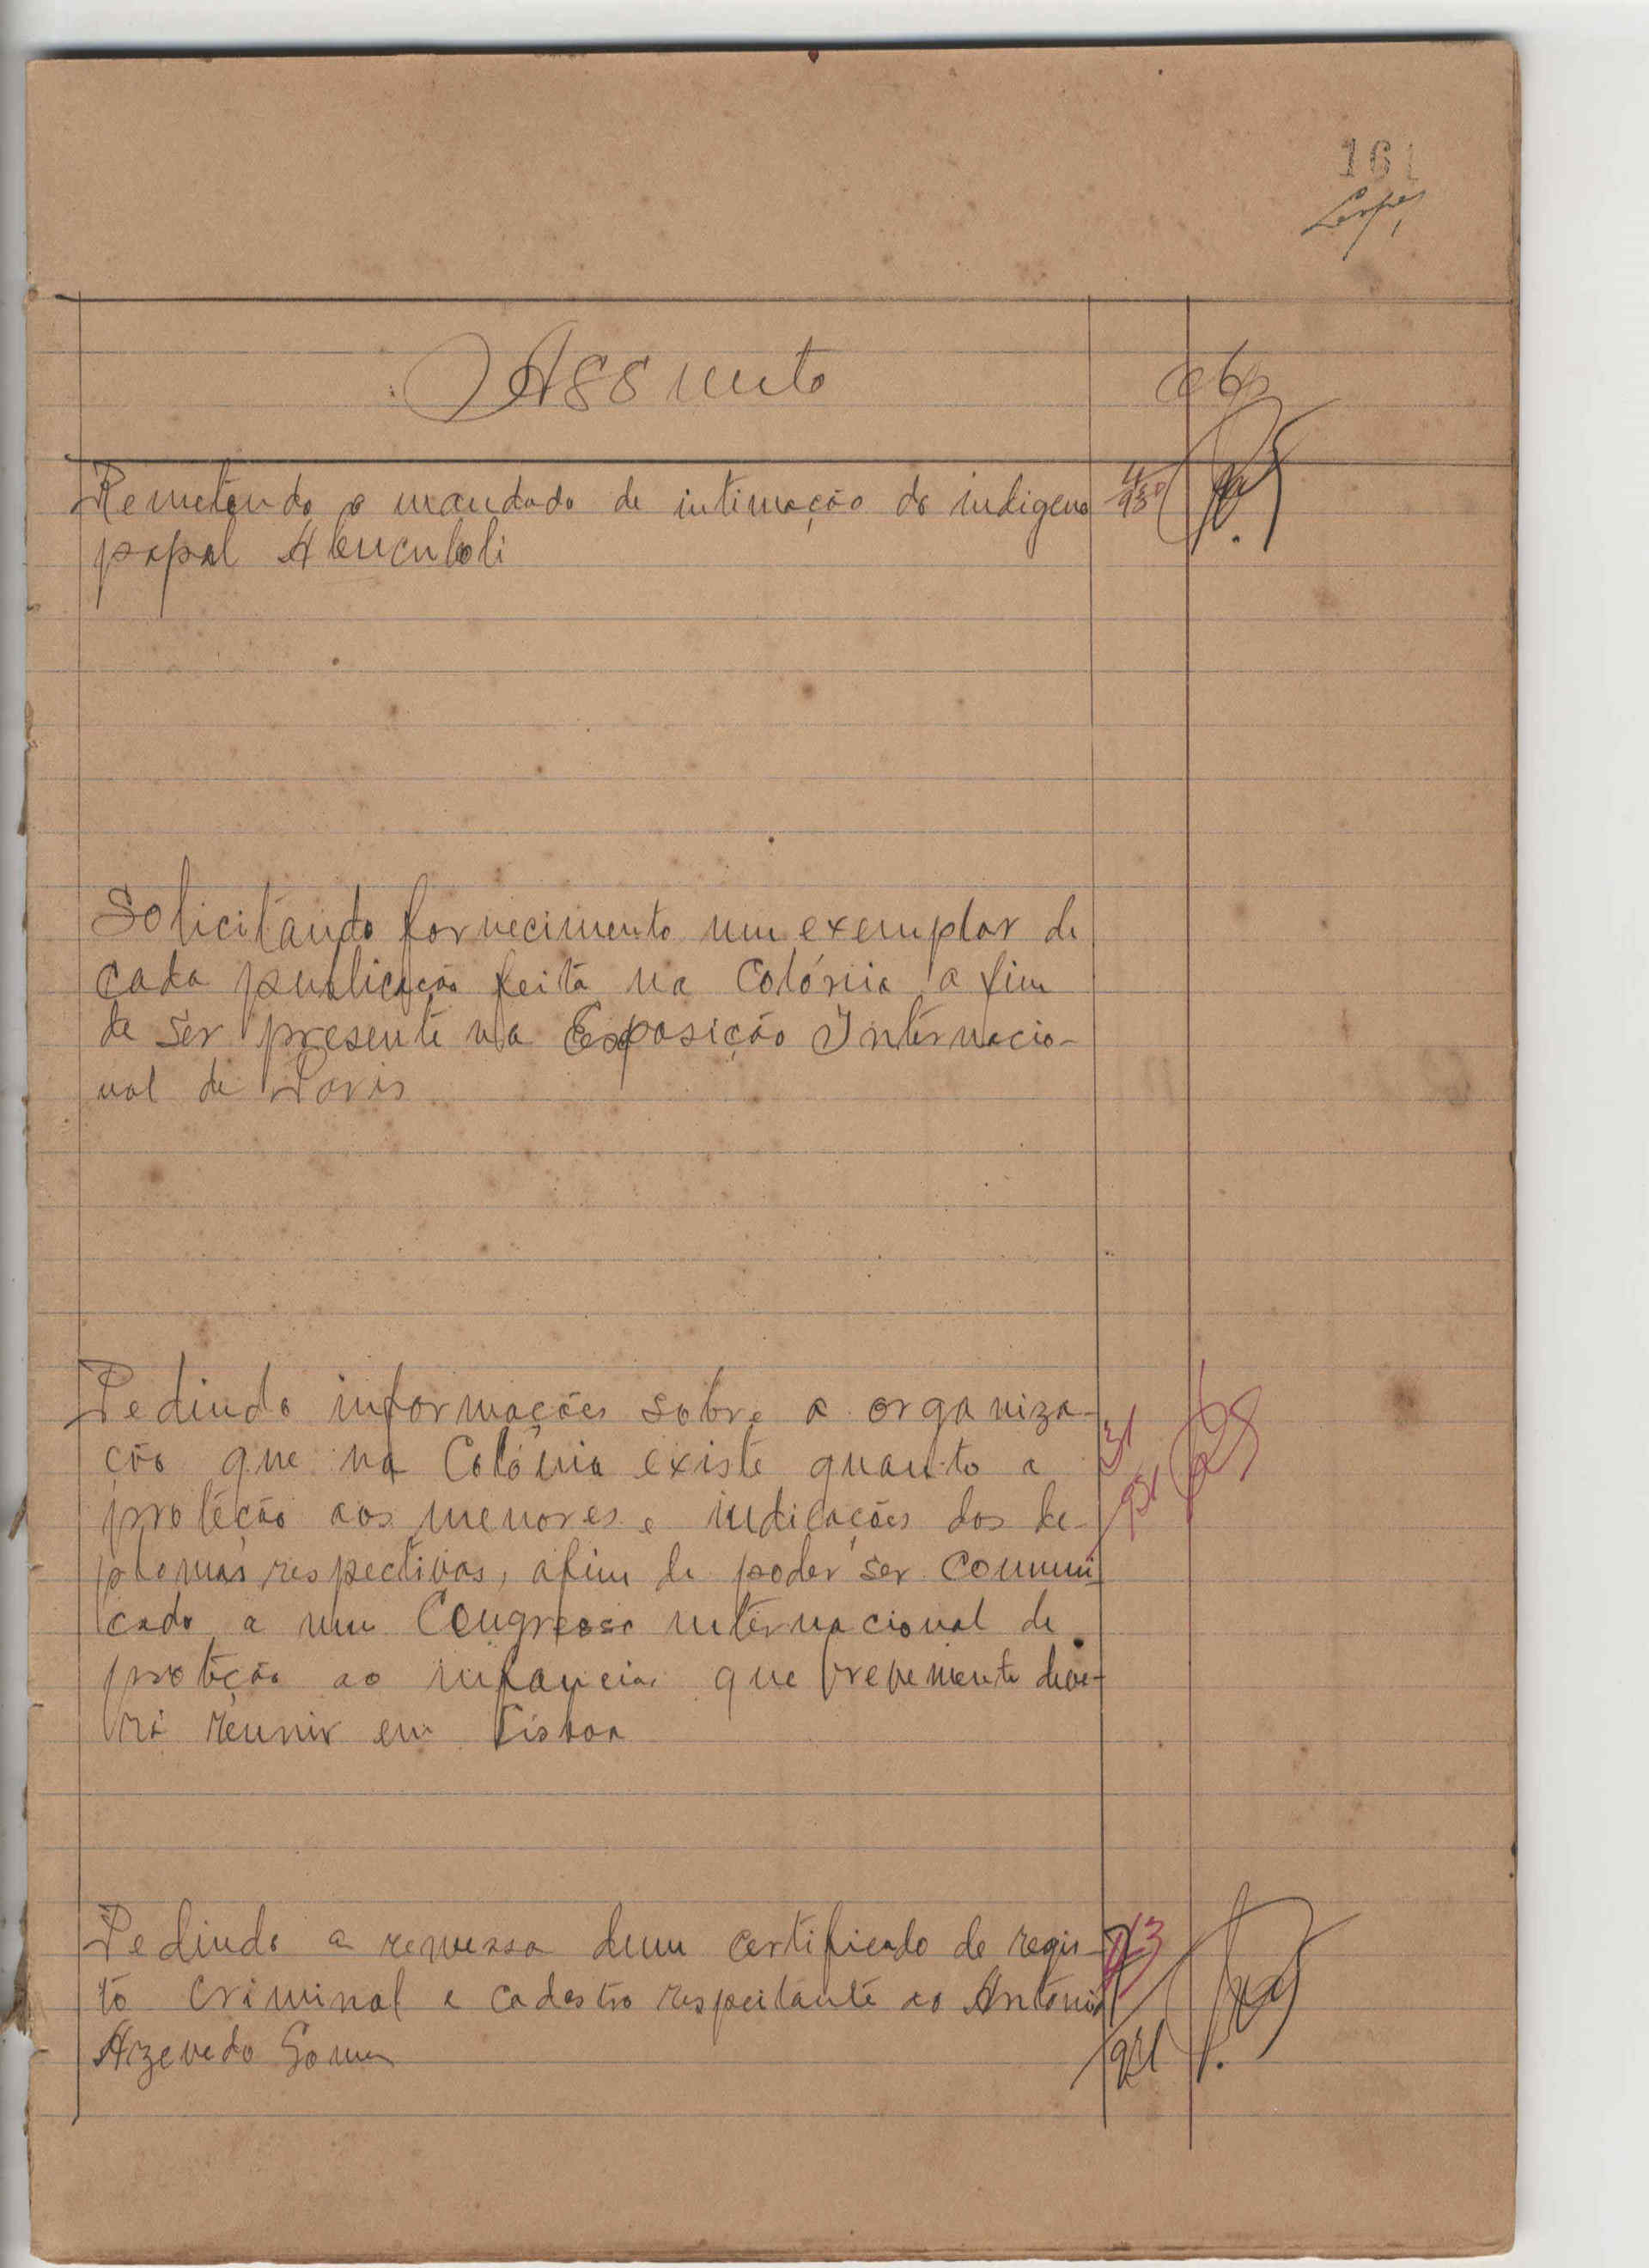 161
Assunto
Remetendo o mandado de intimação do indigena
papel
Solicitando fornecimento um exemplar de
cada publicação feita na Colónia a fim
de ser presente na Exposição Internacio-
nal de Paris
Pedindo informações sobre a organiza-
ção que na Colónia existe quanto a
proteção aos menores e indicações dos de-
plomas respectivos, afim de poder ser communi
cado a um Congresso internacional de
proteção ao infancia que brevemente deve-
rá reunir em Lisboa
31
931
Pedindo a remessa dum certificado de regis-
to criminal e cadastro respeitante ao António
Azevedo Gomes
931